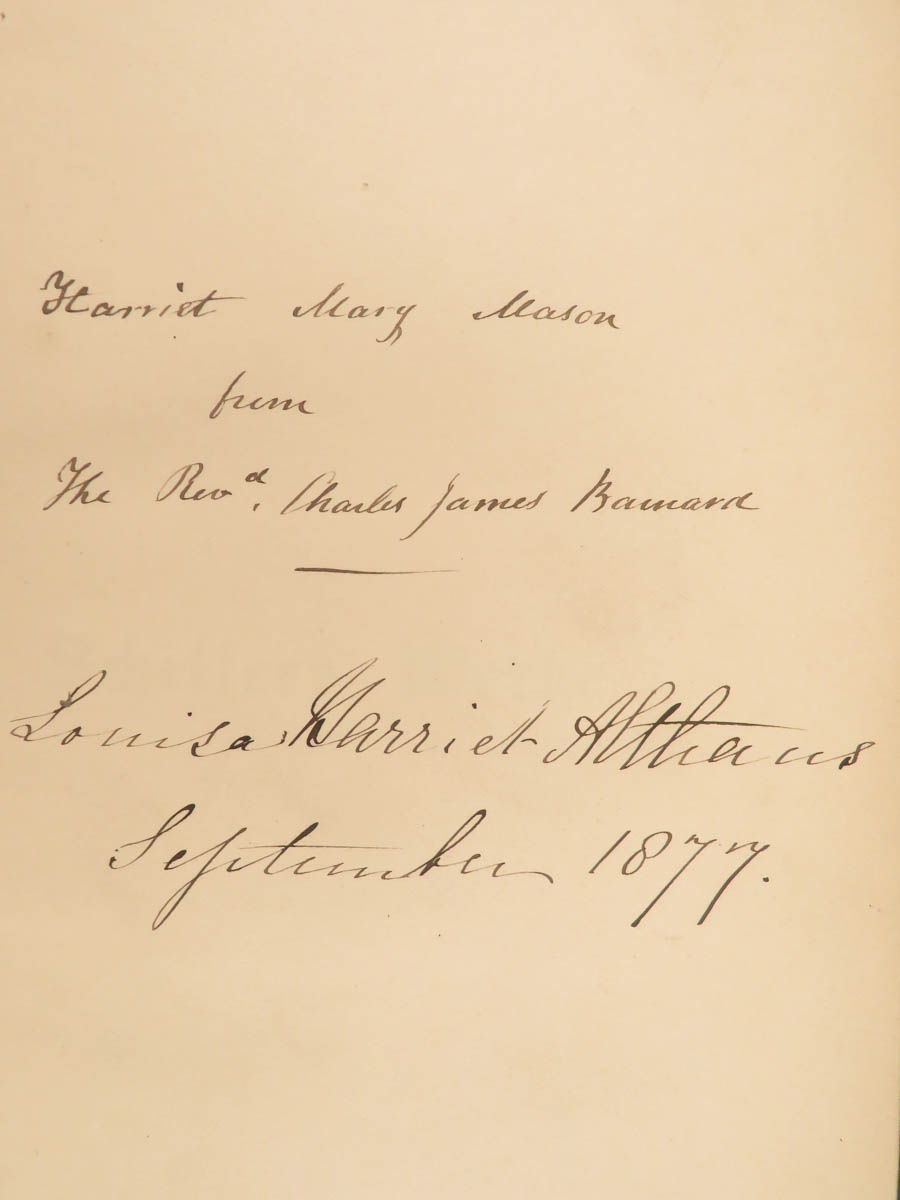 Harriet Mary Mason
from
The Revd. Charles James Barnard
Louisa Harriet Althaus
September 1877.